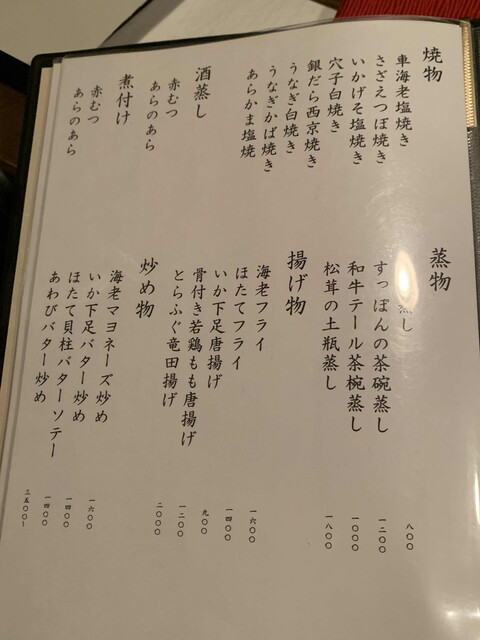 焼物
車海老塩焼き
さざえつぼ焼き
いかげそ塩焼き
穴子白焼き
銀だら西京焼き
うなぎ白焼き
うなぎかば焼き
あらかま塩焼
酒蒸し
赤むつ
あらのあら
煮付け
赤むつ
あらのあら
蒸物
蒸し 八〇〇
すっぽんの茶碗蒸し 一二〇〇
和牛テール茶椀蒸し 一〇〇〇
松茸の土瓶蒸し 一八〇〇
揚げ物
海老フライ 一六〇〇
ほたてフライ 一四〇〇
いか下足唐揚げ 九〇〇
骨付き若鶏もも唐揚げ 一二〇〇
とらふぐ竜田揚げ 二〇〇〇
炒め物
海老マヨネーズ炒め 一六〇〇
いか下足バター炒め 一四〇〇
ほたて貝柱バターソテー 一四〇〇
あわびバター炒め 三五〇〇〜